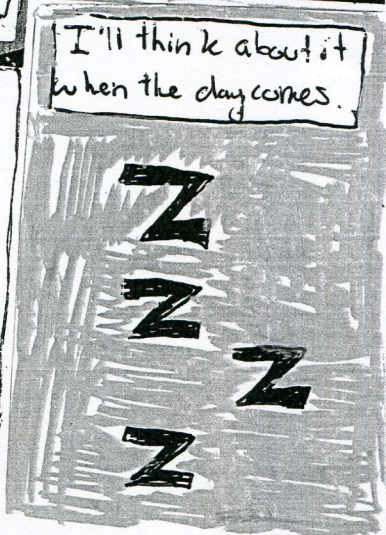 I'll think about it
when the day comes.
Z
Z
Z
Z